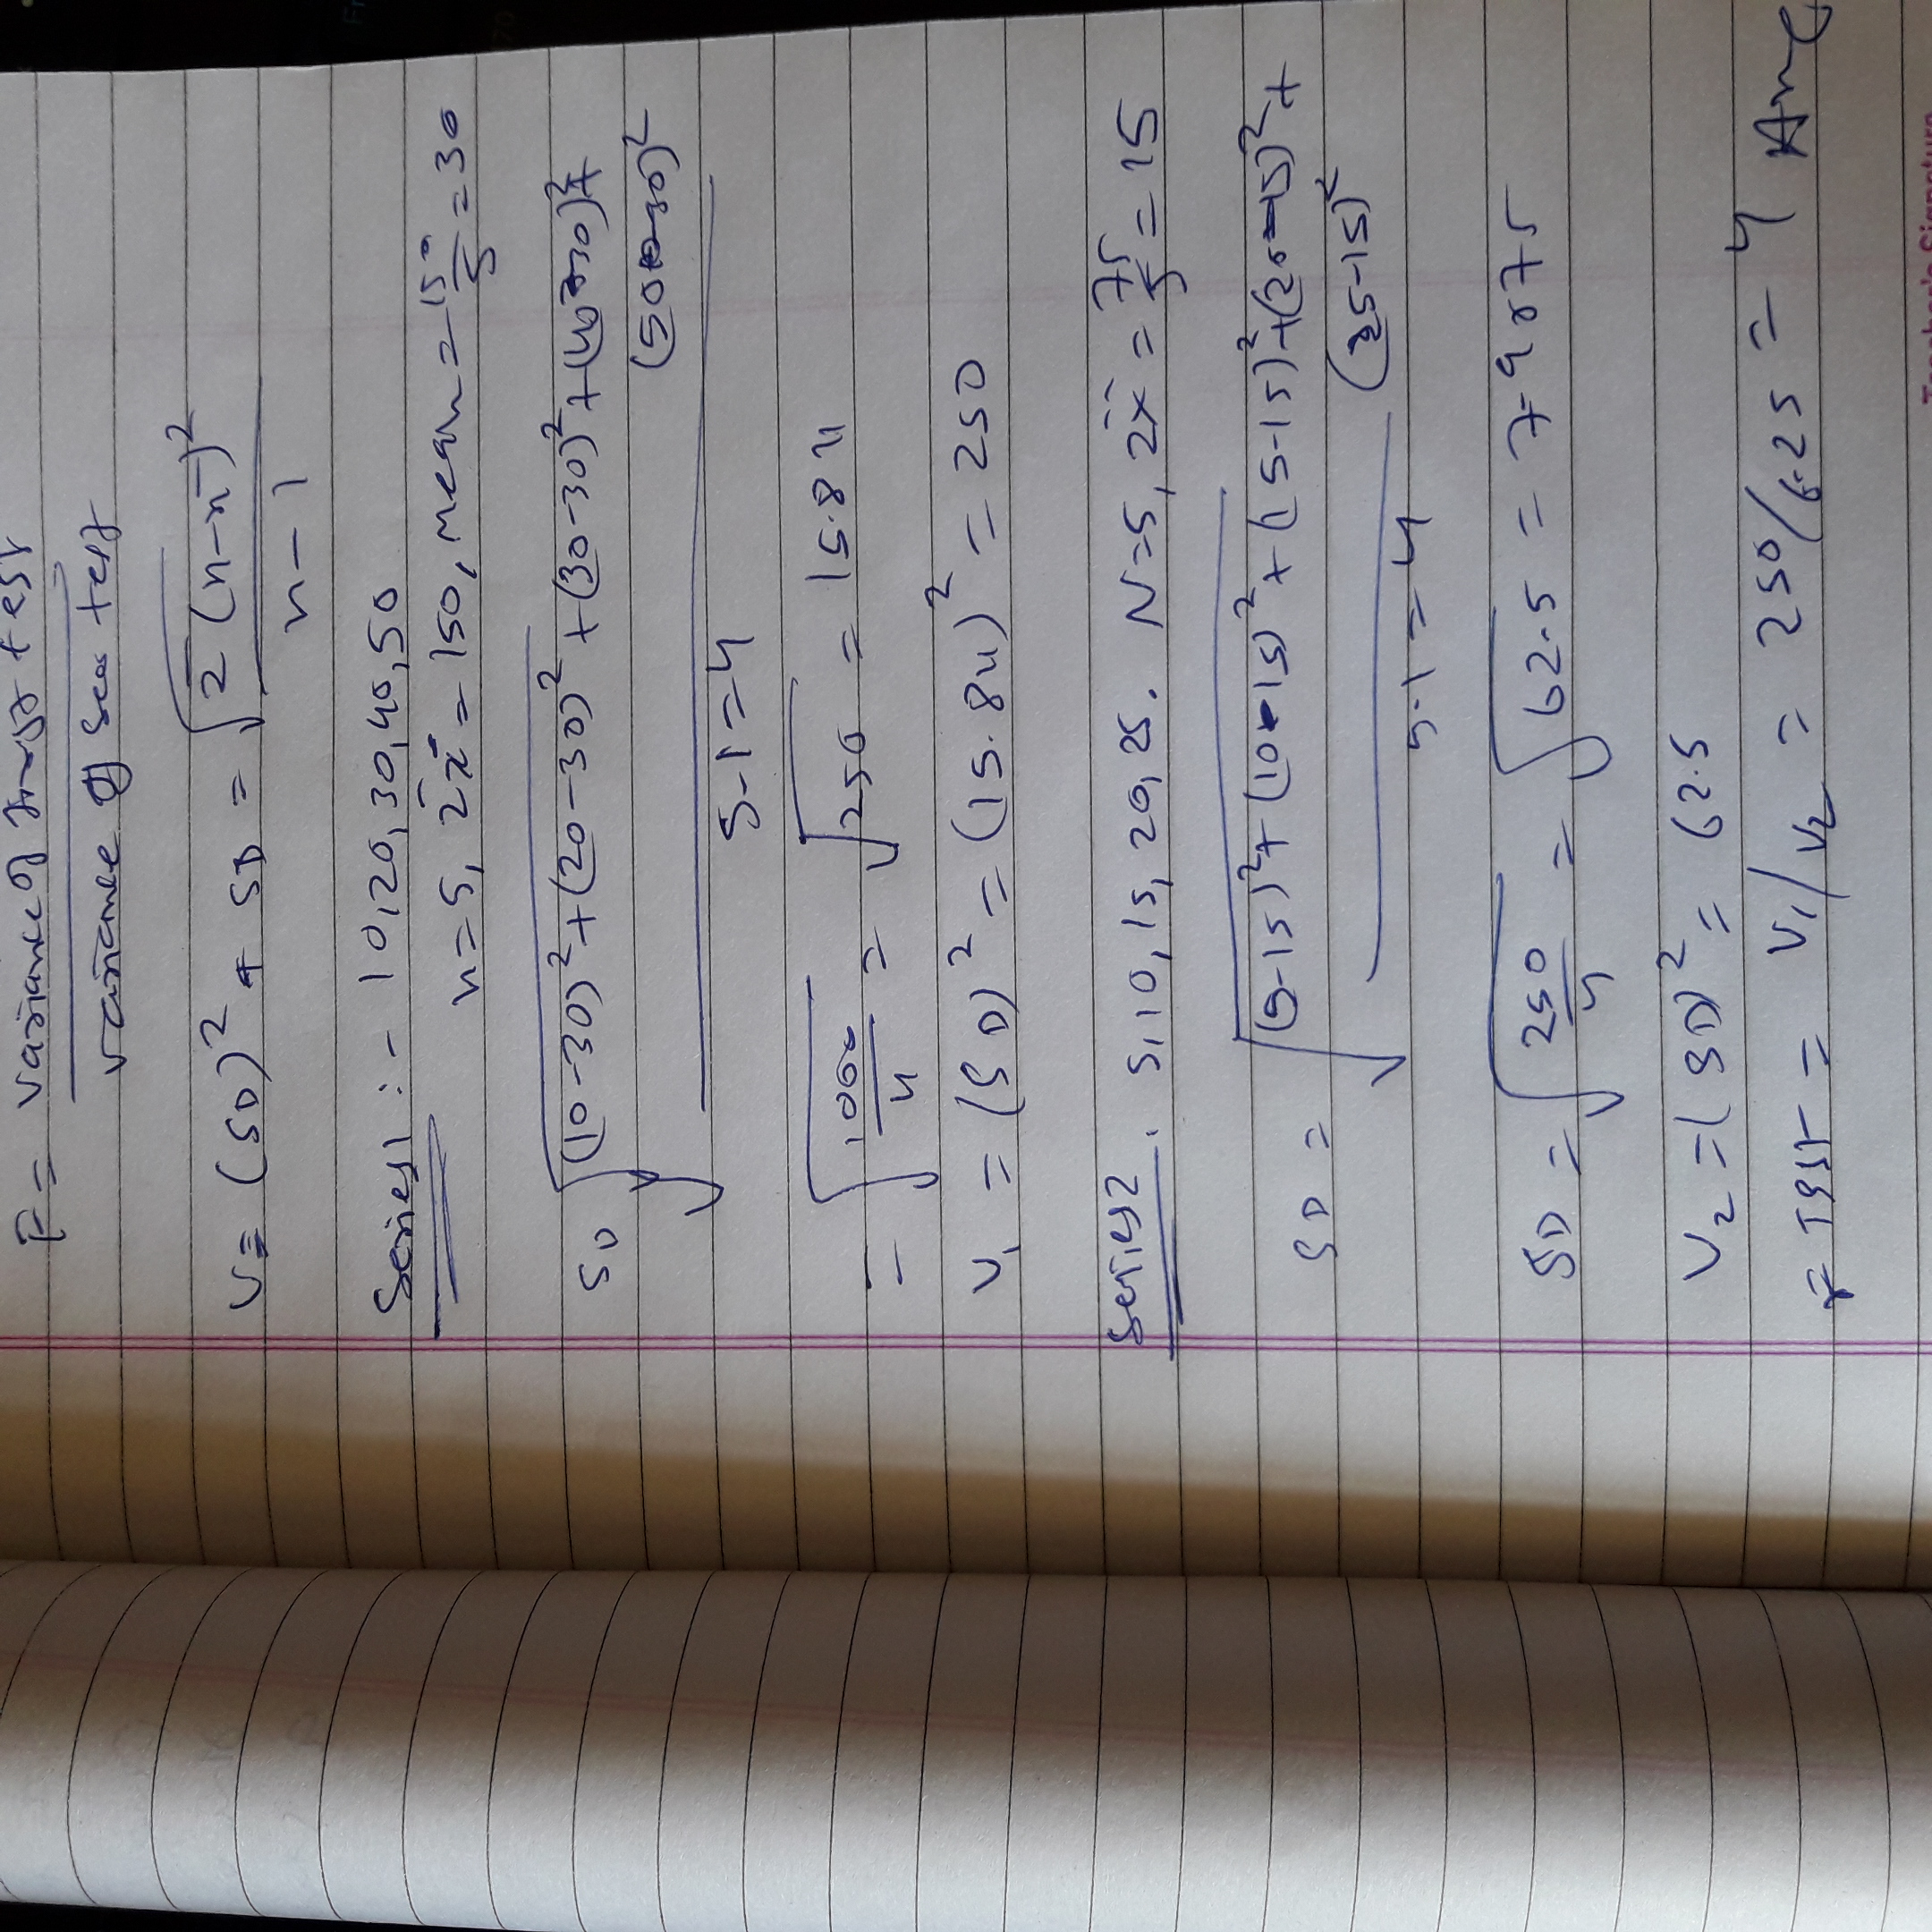 F = variance of first test
variance of sec test
V = (SD)² & SD = √Σ(x-x̄)²
n-1
Series1 :- 10,20,30,40,50
n=5, Σx = 150, mean = 150/5 = 30
SD √(10-30)²+(20-30)²+(30-30)²+(40-30)²+
(50-30)²
5-1=4
= √1000/4 = √250 = 15.84
V₁ = (SD)² = (15.84)² = 250
Series2. 5,10,15,20,25. N=5, Σx̄ = 75/5 = 15
SD = √(5-15)²+(10-15)²+(15-15)²+(20-15)²+
(25-15)²
5-1=4
SD = √250/4 = √62.5 = 7.9075
V₂ = (SD)² = 62.5
F TEST = V₁/V₂ = 250/6.25 = 4 Ans
Teacher's Signature